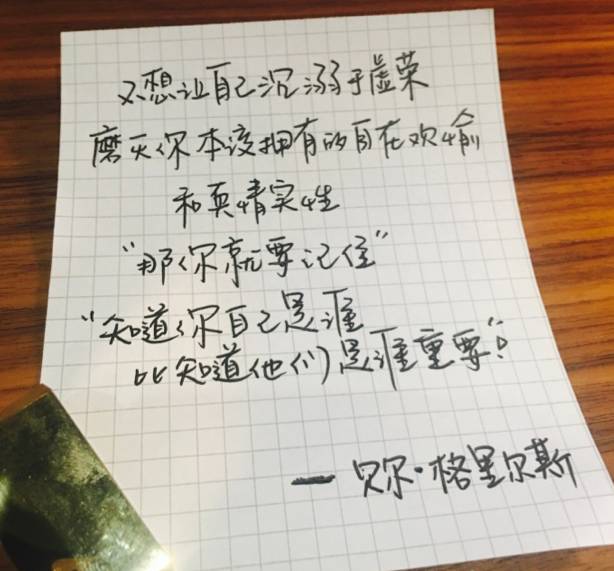 不想让自己沉溺于虚荣
磨灭你本该拥有的自在欢愉
和真情实性
“那你就要记住”
“知道你自己是谁
比知道他们是谁重要”!
— 贝尔·格里尔斯